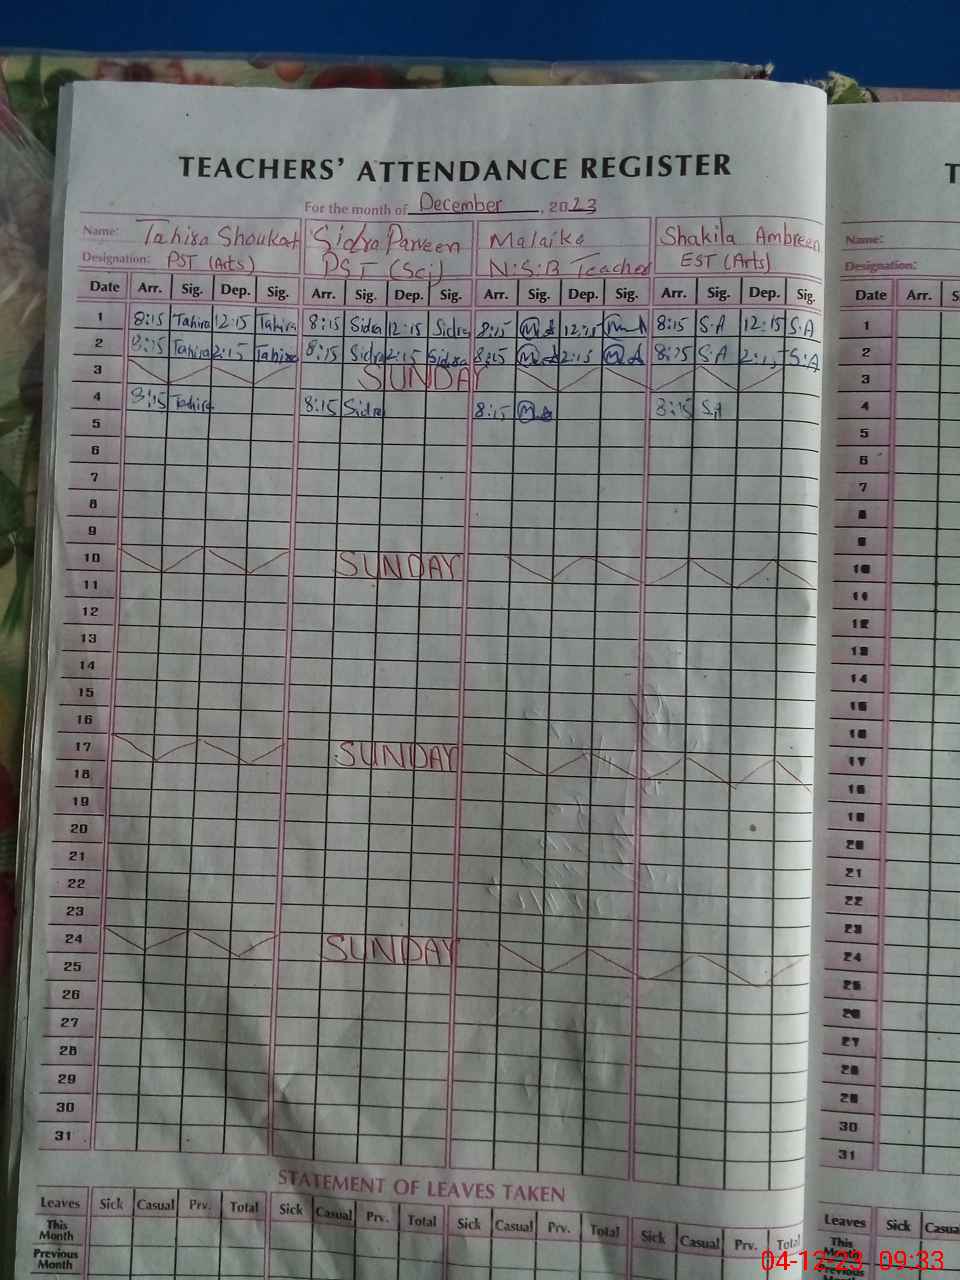 TEACHERS' ATTENDANCE REGISTER
For the month of December, 2023
Name: Tahira Shoukat Sidra Parveen Malaika Shakila Ambreen
Designation: PST (Arts) PST (Sci) N.S.B Teacher EST (Arts)
Date Arr. Sig. Dep. Sig. Arr. Sig. Dep. Sig. Arr. Sig. Dep. Sig. Arr. Sig. Dep. Sig.
1 8:15 Tahira 12:15 Tahira 8:15 Sidra 12:15 Sidra 8:15 12:15 8:15 S.A 12:15 S.A
2 8:15 Tahira 2:15 Tahira 8:15 Sidra 2:15 Sidra 8:15 2:15 8:15 S.A 2:15 S.A
3 SUNDAY
4 8:15 Tahira 8:15 Sidra 8:15 8:15 S.A
5
6
7
8
9
10 SUNDAY
11
12
13
14
15
16
17 SUNDAY
18
19
20
21
22
23
24 SUNDAY
25
26
27
28
29
30
31
STATEMENT OF LEAVES TAKEN
Leaves Sick Casual Prv. Total Sick Casual Prv. Total Sick Casual Prv. Total Sick Casual Prv. Total
This Month
Previous Month
T
Name:
Designation:
Date Arr. S
1
2
3
4
5
6
7
8
9
10
11
12
13
14
15
16
17
18
19
20
21
22
23
24
25
26
27
28
29
30
31
Leaves Sick Casua
This Month
Previous
04-12-23 09:33